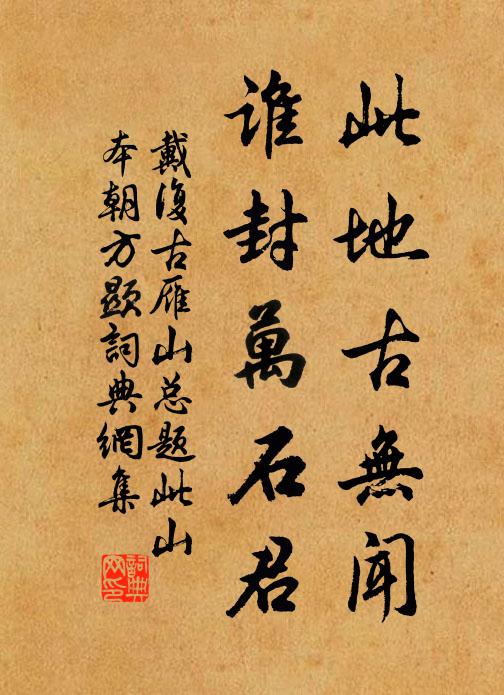 此地古無聞
谁封萬石君
戴復古雁山总题此山
本朝方顯詞典網集
詞典网印